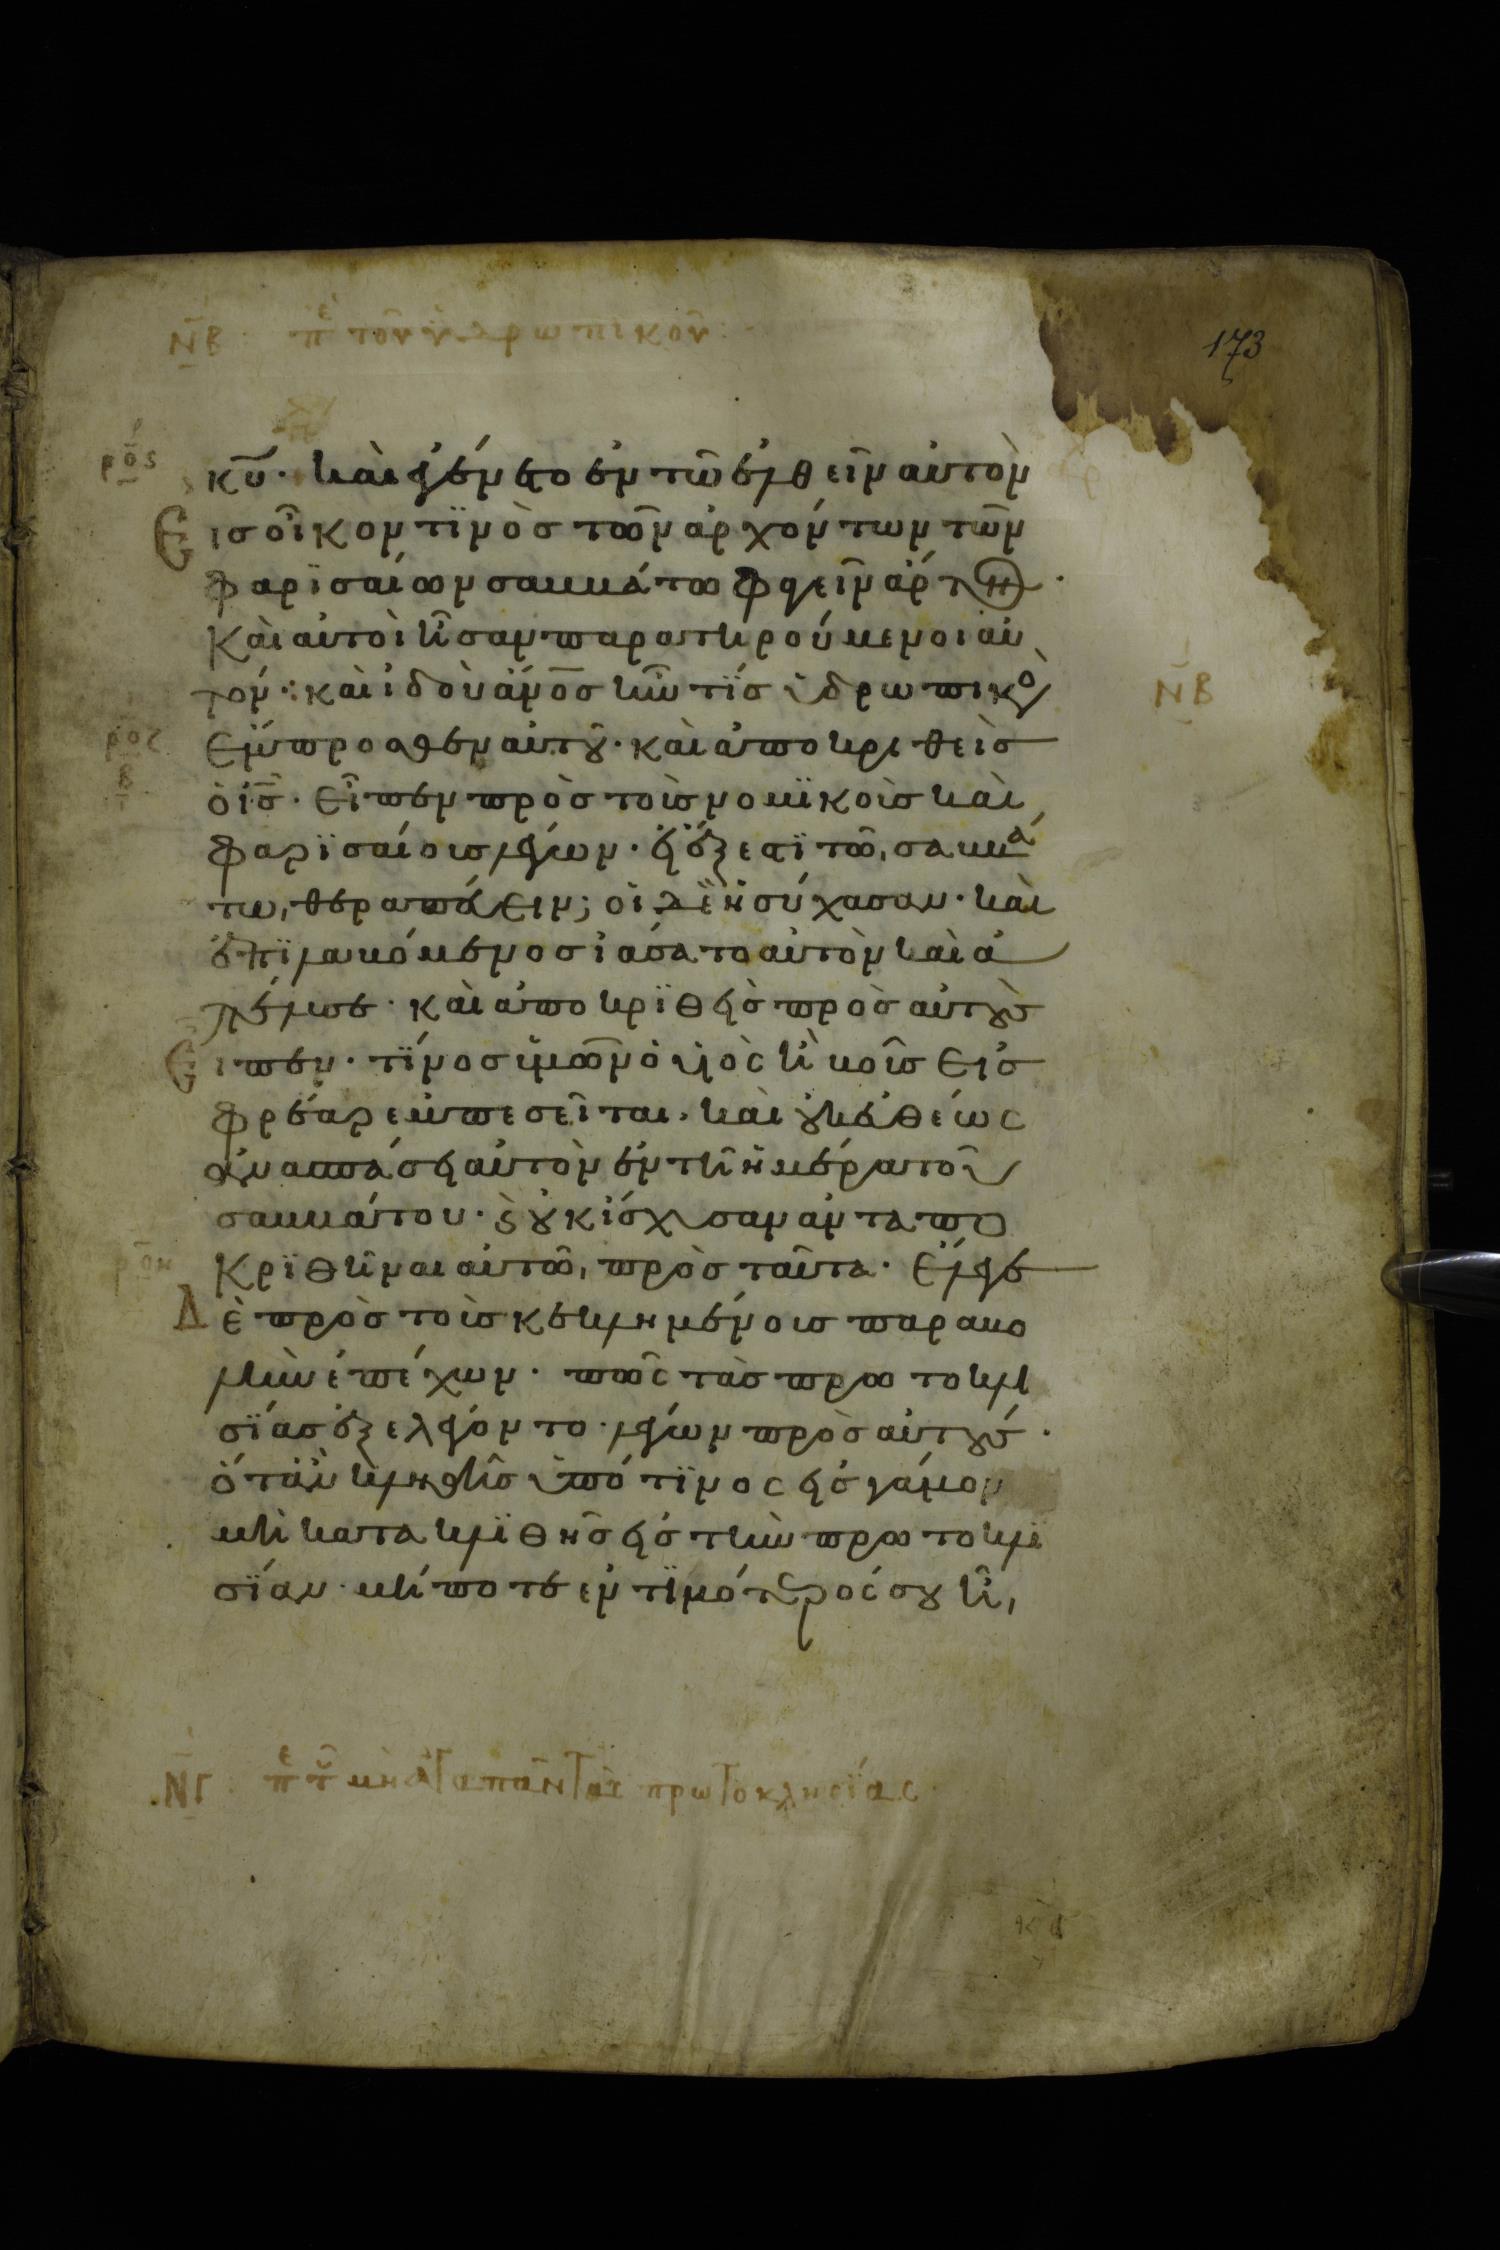 173
ΝΒ πε τοῦ ὑδρωπικοῦ:
κυ̅. καὶ ἐγένετο ἐν τῶ ἐλθεῖν αὐτὸν
εἰς οἶκον τϊνὸς τῶν ἀρχόντων τῶν
φαρϊσαίων σαββάτω φαγεῖν ἄρτον.
καὶ αὐτοὶ ἦσαν παρατηρούμενοι αὐ
τόν: καὶ ἰδοὺ ἄνο̅σ ἦν τϊσ ὑδρωπικὸσ
ΝΒ
ἔμπροσθεν αὐτοῦ. καὶ ἀποκριθεὶσ
ὁ ἰσ̅. εἶπεν πρὸσ τοὶσ νομϊκοὶσ καὶ
φαρϊσαίοισ λέγων. εἰ ἔξεστϊ τῶ, σαββά
τω, θεραπεύειν; οἱ δὲ ἡσύχασαν. καὶ
ἐπϊλαβόμενοσ ἰάσατο αὐτὸν καὶ ἀ
πέλυσε. καὶ ἀποκρϊθεὶσ πρὸσ αὐτοὺσ
εἶπεν. τϊνοσ ὑμῶν ὁ υἱὸσ ἢ βοῦσ εἰσ
φρέαρ ἐμπεσεῖται. καὶ οὐκ εὐθέως
ἀνασπάσει αὐτὸν ἐν τῆ ἡμέρα τοῦ
σαββάτου. καὶ οὐκ ἰσχυσαν ἀνταπο
κρϊθῆναι αὐτῶ, πρὸσ ταῦτα. ἔλεγε
δὲ πρὸσ τοὶσ κεκλημένοισ παραβο
λὴν ἐπέχων. πῶς τὰσ πρωτοκλι
σϊασ ἐξελέγοντο. λέγων πρὸσ αὐτούσ.
ὅταν κληθῆσ ὑπό τϊνος εἰσ γάμον
μὴ κατακλϊθῆσ εἰσ τὴν πρωτοκλϊ
σϊαν. μήποτε ἐντϊμότερόσ σου ἦ,
ΝΓ πε τοῦ μὴ ἀγαπᾶν τὰς πρωτοκλησίας